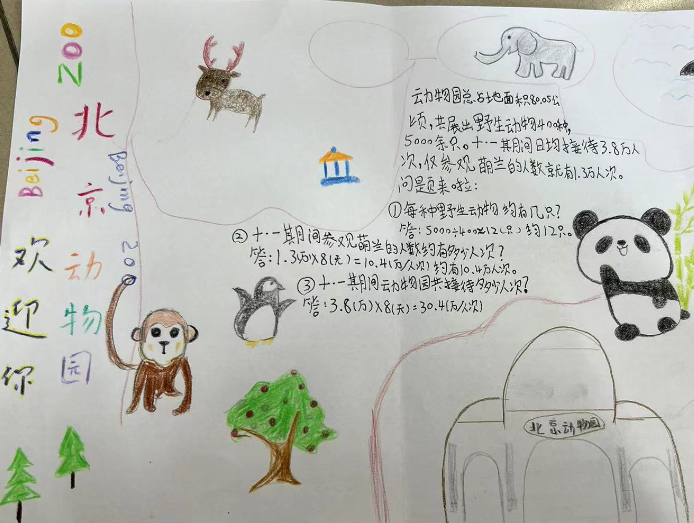 Beijing ZOO
北京动物园
Beijing zoo
欢迎你
动物园总占地面积80.05公
顷,共展出野生动物400种,
5000余只。十·一期间日均接待3.8万人
次,仅参观萌兰的人数就有1.3万人次。
问题来啦:
①每种野生动物约有几只?
答:5000÷400≈12(只)约12只。
②十·一期间参观萌兰的人数约有多少人次?
答:1.3(万)×8(天)=10.4(万/人次)约有10.4万人次。
③十·一期间动物园共接待多少人次?
答:3.8(万)×8(天)=30.4(万/人次)
北京动物园